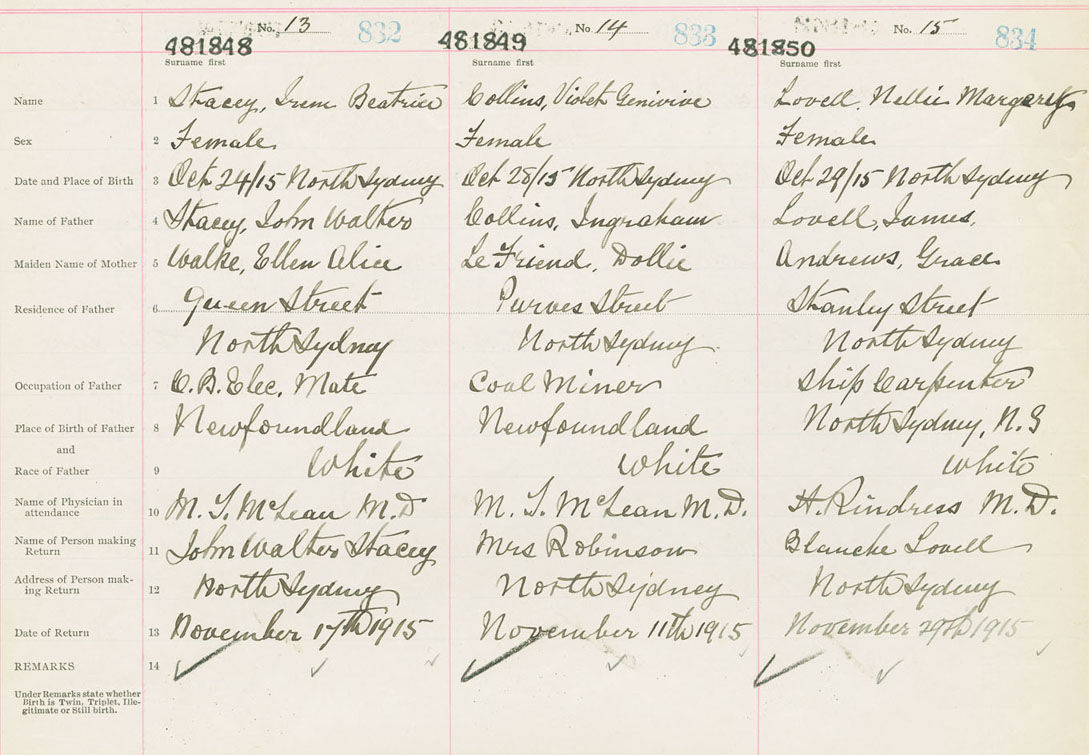 No. 13 832 No. 14 833 No. 15 834
481848 481849 481850
Surname first Surname first Surname first
Name 1 Stacey, Irem Beatrice Collins, Violet Genivive Lovell, Nellie Margaret
Sex 2 Female Female Female
Date and Place of Birth 3 Oct 24/15 North Sydney Oct 28/15 North Sydney Oct 29/15 North Sydney
Name of Father 4 Stacey, John Walter Collins, Ingraham Lovell, James,
Maiden Name of Mother 5 Walke, Ellen Alice Le Friend, Dollie Andrews, Grace
Residence of Father 6 Queen Street Purves Street Stanley Street
North Sydney North Sydney North Sydney
Occupation of Father 7 O.B. Elec. Mate Coal Miner Ship Carpenter
Place of Birth of Father 8 Newfoundland Newfoundland North Sydney, N.S
and
Race of Father 9 White White White
Name of Physician in attendance 10 M. T. McLean M.D M. T. McLean M.D. H. Rindress M.D.
Name of Person making Return 11 John Walter Stacey Mrs Robinson Blanche Lovell
Address of Person mak-
ing Return 12 North Sydney North Sydney North Sydney
Date of Return 13 November 17th 1915 November 11th 1915 November 29th 1915
REMARKS 14
Under Remarks state whether
Birth is Twin, Triplet, Ille-
gitimate or Still birth.